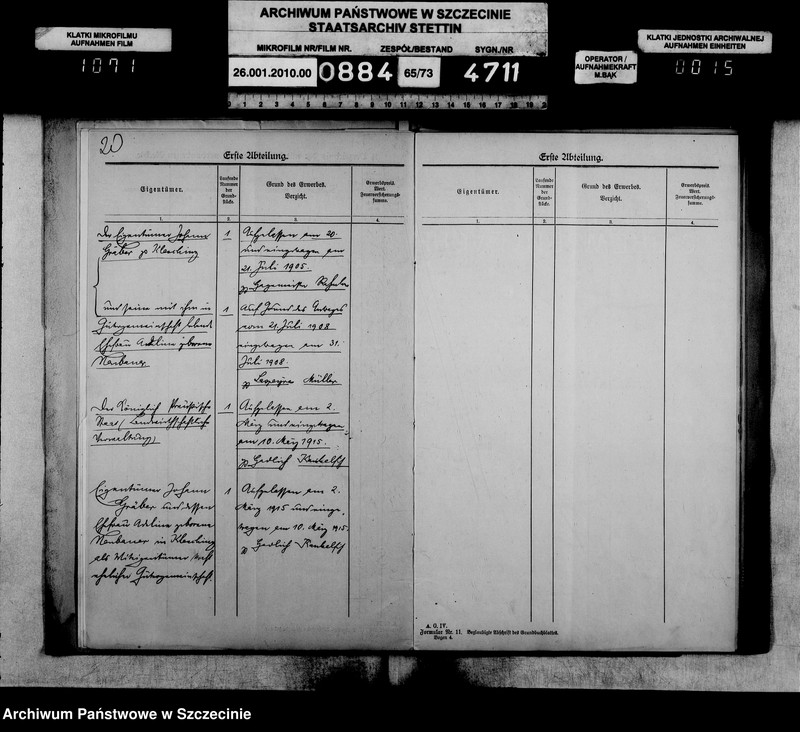 ARCHIWUM PAŃSTWOWE W SZCZECINIE
STAATSARCHIV STETTIN
KLATKI MIKROFILMU
AUFNAHMEN FILM
1071
MIKROFILM NR/FILM NR.
ZESPÓŁ/BESTAND
SYGN./NR
26.001.2010.00
0884
65/73
4711
OPERATOR /
AUFNAHMEKRAFT
M.BĄK
KLATKI JEDNOSTKI ARCHIWALNEJ
AUFNAHMEN EINHEITEN
0015
20
Erste Abteilung.
Eigentümer.
Laufende Nummer der Grundstücke.
Grund des Erwerbes.
Verzicht.
Erwerbspreis.
Wert.
Feuerversicherungssumme.
1.
2.
3.
4.
Der Eigentümer Johann
Gräber zu
1
Aufgelassen am 20.
und eingetragen am
21. Juli 1905.
und seine mit ihm in
Gütergemeinschaft lebende
Ehefrau Adeline geborene
Neubauer
1
Auf Grund des
vom 21. Juli 1908
eingetragen am 31.
Juli 1908.
Müller
Der Königlich Preußische
(Landwirthschaftliche
Verwaltung)
1
Aufgelassen am 2.
März und eingetragen
am 10. März 1915.
Eigentümer Johann
Gräber und dessen
Ehefrau Adeline geborene
Neubauer in
als Miteigentümer kraft
ehelicher Gütergemeinschaft.
1
Aufgelassen am 2.
März 1915 und einge-
tragen am 10. März 1915.
Erste Abteilung.
Eigentümer.
Laufende Nummer der Grundstücke.
Grund des Erwerbes.
Verzicht.
Erwerbspreis.
Wert.
Feuerversicherungssumme.
1.
2.
3.
4.
A. G. IV.
Formular Nr. 11. Beglaubigte Abschrift des Grundbuchblattes.
Bogen 4.
Archiwum Państwowe w Szczecinie